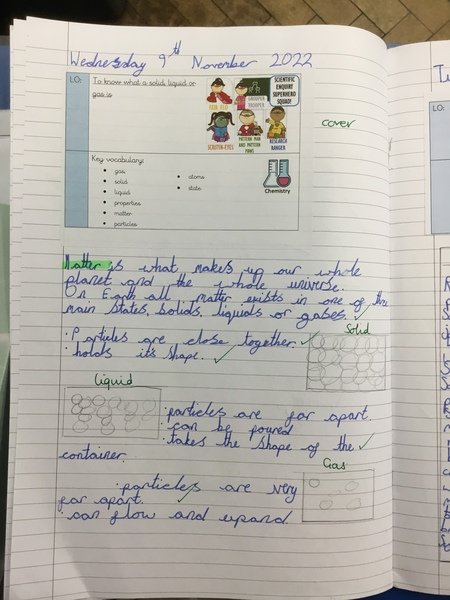 Wednesday 9th November 2022
LO:
To know what a solid, liquid or
gas is
SCIENTIFIC
ENQUIRY
SUPERHERO
SQUAD!
FAIR FLO
GROUPER
TROOPER
SCRUTIN-EYES
PATTERN MAN
AND PATTERN
PAWS
RESEARCH
RANGER
cover
Key vocabulary:
gas
solid
liquid
properties
matter
particles
atoms
state
Chemistry
Matter is what makes up our whole
planet and the whole universe.
On Earth all matter exists in one of the
main states, solids, liquids or gases.
Particles are close together.
holds its shape.
Solid
Liquid
particles are far apart.
can be poured
takes the shape of the
container.
Gas
particles are very
far apart.
can flow and expand
LO: